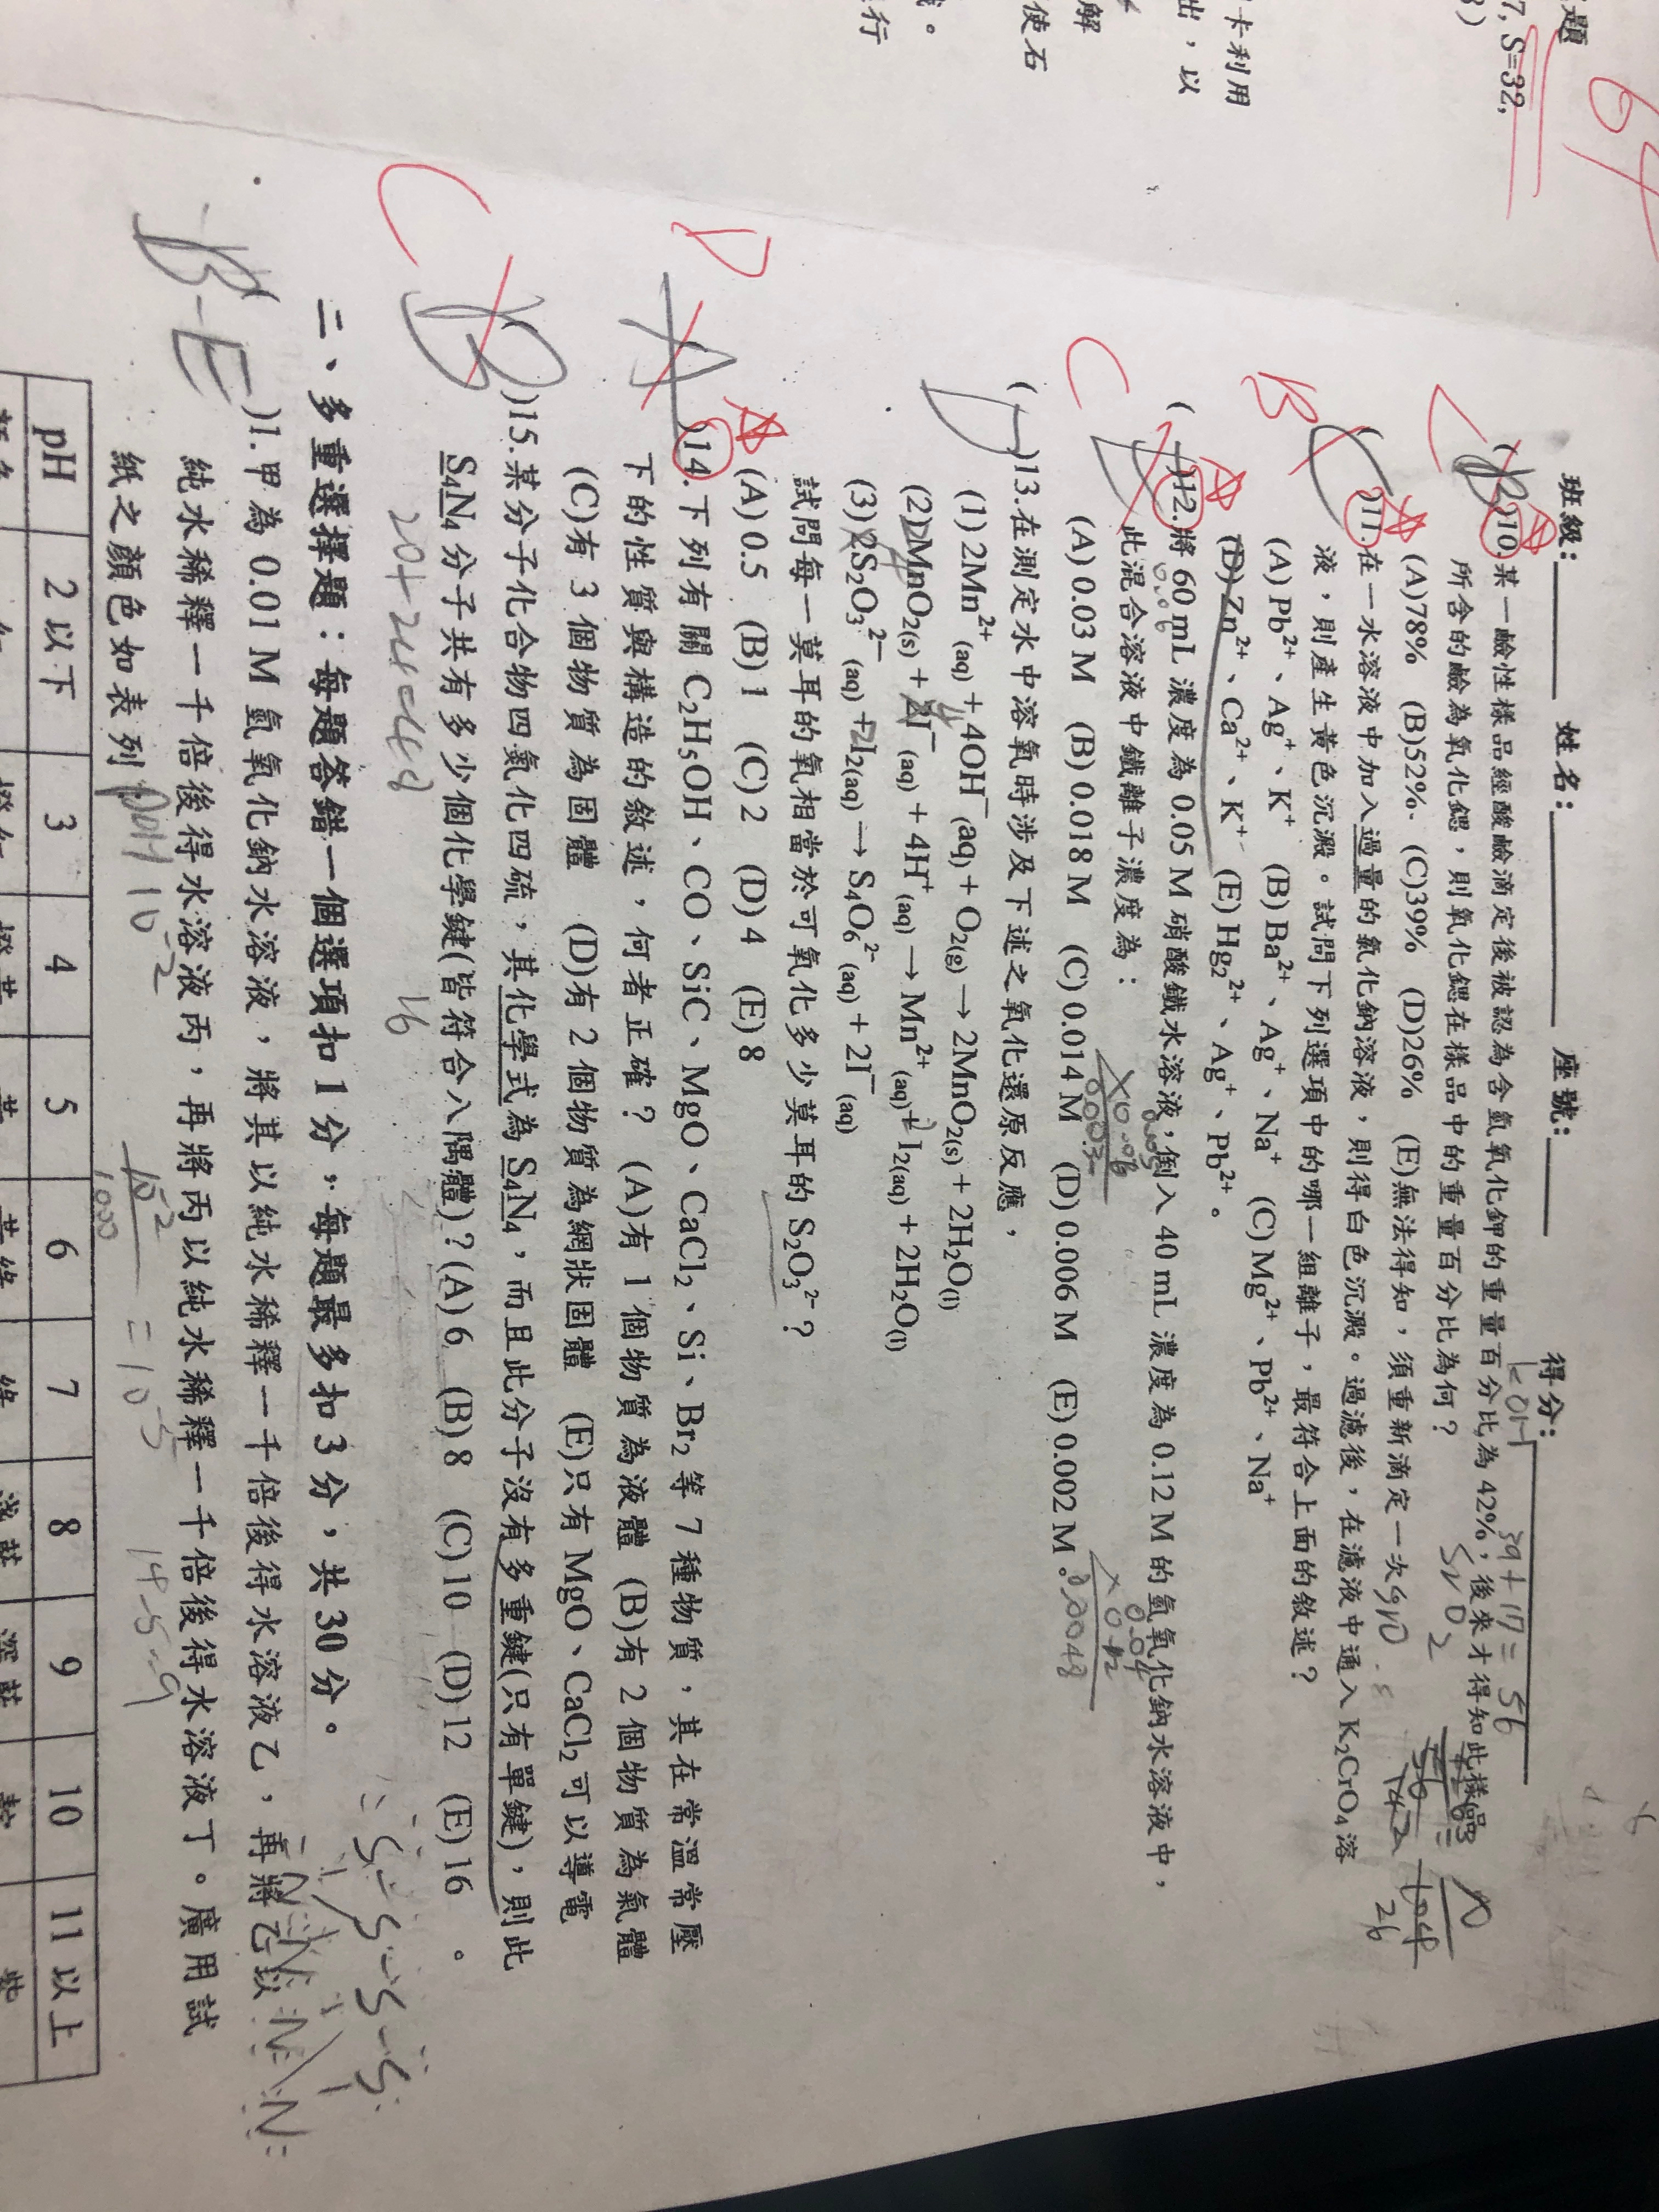 題
7, S=32,
3)
卡利用
出,以
解
使石
。
行
64
班級: 姓名: 座號: 得分:
KOH 39+17=56
C (B)10.某一鹼性樣品經酸鹼滴定後被認為含氫氧化鉀的重量百分比為 42%,後來才得知此樣品
所含的鹼為氧化鍶,則氧化鍶在樣品中的重量百分比為何?
(A)78% (B)52% (C)39% (D)26% (E)無法得知,須重新滴定一次
B ( )11.在一水溶液中加入過量的氯化鈉溶液,則得白色沉澱。過濾後,在濾液中通入 K₂CrO₄ 溶
液,則產生黃色沉澱。試問下列選項中的哪一組離子,最符合上面的敘述?
(A) Pb²⁺、Ag⁺、K⁺ (B) Ba²⁺、Ag⁺、Na⁺ (C) Mg²⁺、Pb²⁺、Na⁺
(D) Zn²⁺、Ca²⁺、K⁺ (E) Hg₂²⁺、Ag⁺、Pb²⁺。
C ( )12.將 60 mL 濃度為 0.05 M 硝酸鐵水溶液,倒入 40 mL 濃度為 0.12 M 的氫氧化鈉水溶液中,
此混合溶液中鐵離子濃度為:
(A) 0.03 M (B) 0.018 M (C) 0.014 M (D) 0.006 M (E) 0.002 M。
(D)13.在測定水中溶氧時涉及下述之氧化還原反應,
(1) 2Mn²⁺(aq) + 4OH⁻(aq) + O₂(g) → 2MnO₂(s) + 2H₂O(l)
(2) MnO₂(s) + 2I⁻(aq) + 4H⁺(aq) → Mn²⁺(aq) + I₂(aq) + 2H₂O(l)
(3) 2S₂O₃²⁻(aq) + I₂(aq) → S₄O₆²⁻(aq) + 2I⁻(aq)
試問每一莫耳的氧相當於可氧化多少莫耳的 S₂O₃²⁻?
(A) 0.5 (B) 1 (C) 2 (D) 4 (E) 8
D (A)14.下列有關 C₂H₅OH、CO、SiC、MgO、CaCl₂、Si、Br₂ 等 7 種物質,其在常溫常壓
下的性質與構造的敘述,何者正確? (A)有 1 個物質為液體 (B)有 2 個物質為氣體
(C)有 3 個物質為固體 (D)有 2 個物質為網狀固體 (E)只有 MgO、CaCl₂ 可以導電
C (B)15.某分子化合物四氮化四硫,其化學式為 S₄N₄,而且此分子沒有多重鍵(只有單鍵),則此
S₄N₄ 分子共有多少個化學鍵(皆符合八隅體)?(A) 6 (B) 8 (C) 10 (D) 12 (E) 16 。
20+24=44 16
二、多重選擇題:每題答錯一個選項扣 1 分,每題最多扣 3 分,共 30 分。
(BE)1.甲為 0.01 M 氫氧化鈉水溶液,將其以純水稀釋一千倍後得水溶液乙,再將乙以
純水稀釋一千倍後得水溶液丙,再將丙以純水稀釋一千倍後得水溶液丁。廣用試
紙之顏色如表列
pOH 10⁻² 10⁻²/1000 = 10⁻⁵ 14-5=9
pH 2 以下 3 4 5 6 7 8 9 10 11 以上